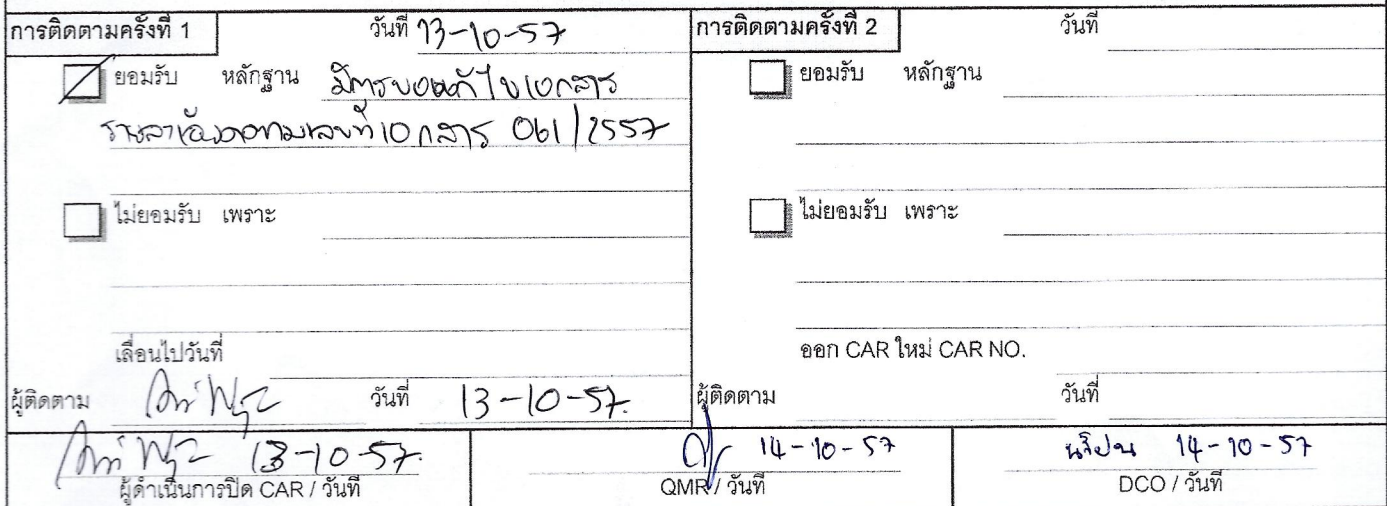 การติดตามครั้งที่ 1 วันที่ 13-10-57
ยอมรับ หลักฐาน มีการขอแก้ไขเอกสาร
รายละเอียดตามเลขที่เอกสาร 061/2557
ไม่ยอมรับ เพราะ
เลื่อนไปวันที่
ผู้ติดตาม วันที่ 13-10-57.
การติดตามครั้งที่ 2 วันที่
ยอมรับ หลักฐาน
ไม่ยอมรับ เพราะ
ออก CAR ใหม่ CAR NO.
ผู้ติดตาม วันที่
13-10-57.
ผู้ดำเนินการปิด CAR / วันที่
14-10-57
QMR / วันที่
14-10-57
DCO / วันที่